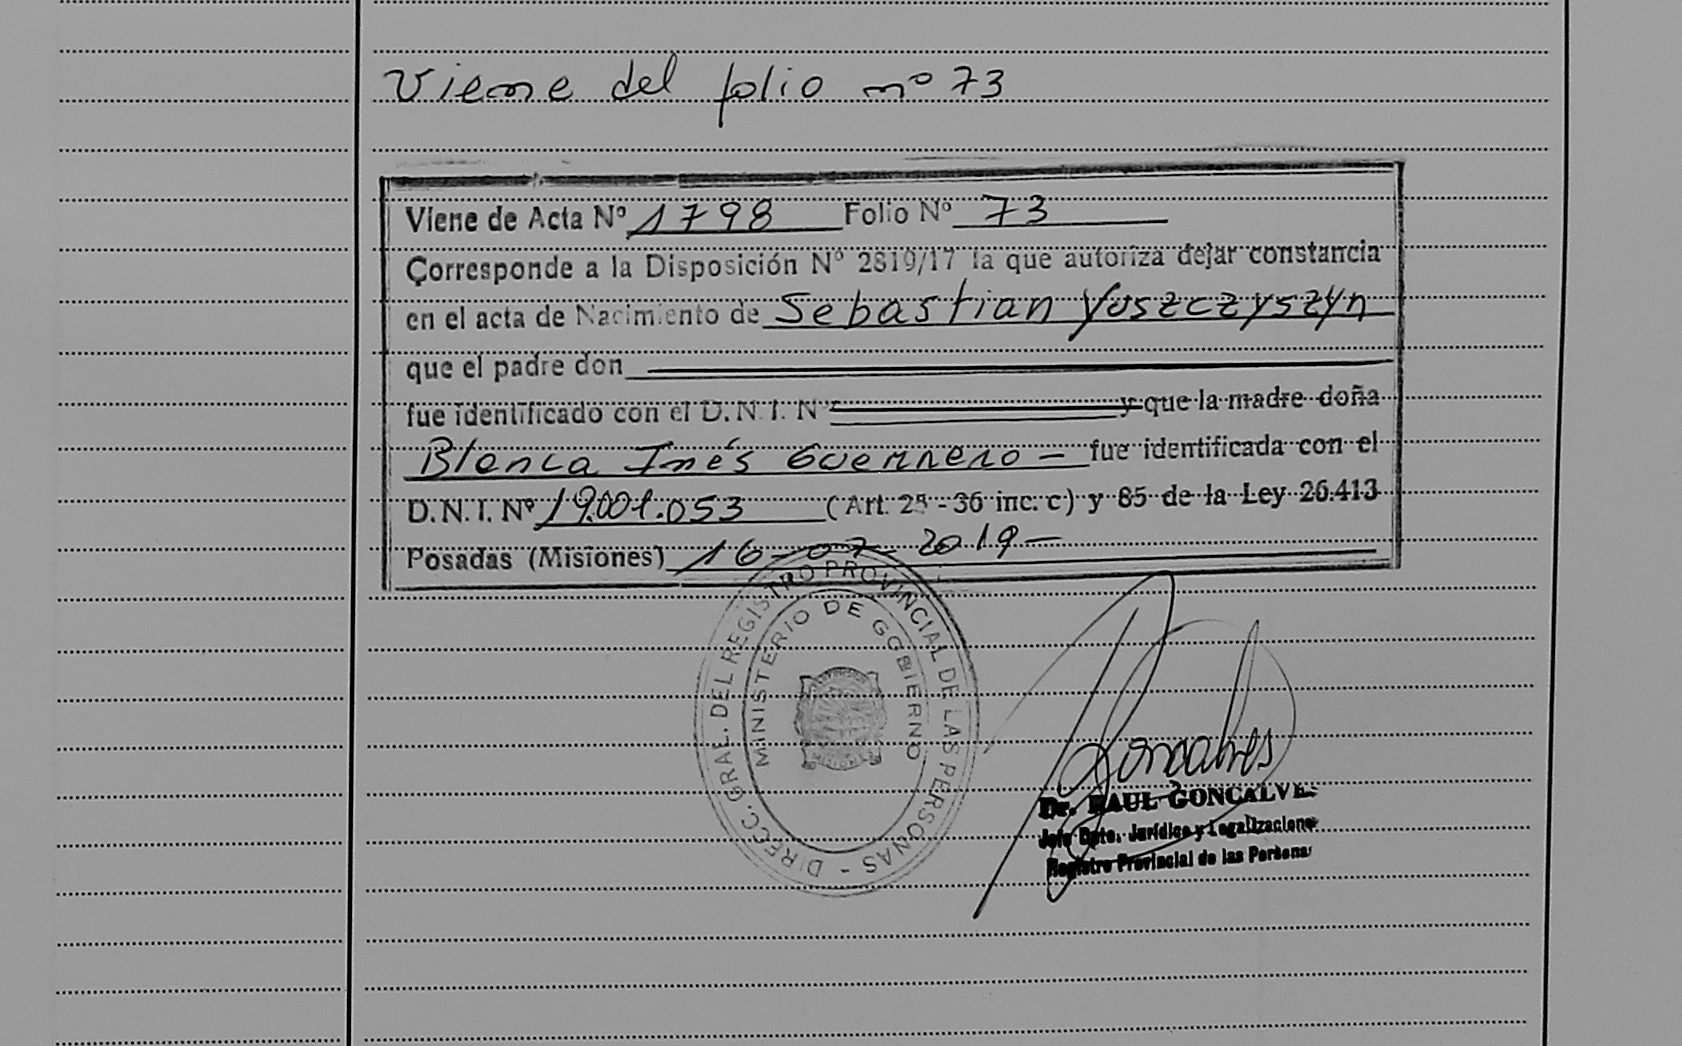 Viene del folio nº 73
Viene de Acta Nº 1798 Folio Nº 73
Corresponde a la Disposición Nº 2819/17 la que autoriza dejar constancia
en el acta de Nacimiento de Sebastian Yuszczyszyn
que el padre don
fue identificado con el D.N.I. Nº y que la madre doña
Blanca Inés Guerrero - fue identificada con el
D.N.I. Nº 19.001.053 (Art. 25-36 inc. c) y 85 de la Ley 26.413
Posadas (Misiones) 16-07-2019-
DIRECC. GRAL. DEL REGISTRO PROVINCIAL DE LAS PERSONAS -
MINISTERIO DE GOBIERNO
MISIONES
Goncalves
Dr. RAUL GONCALVES
Jefe Dpto. Jurídico y Legalizaciones
Registro Provincial de las Personas